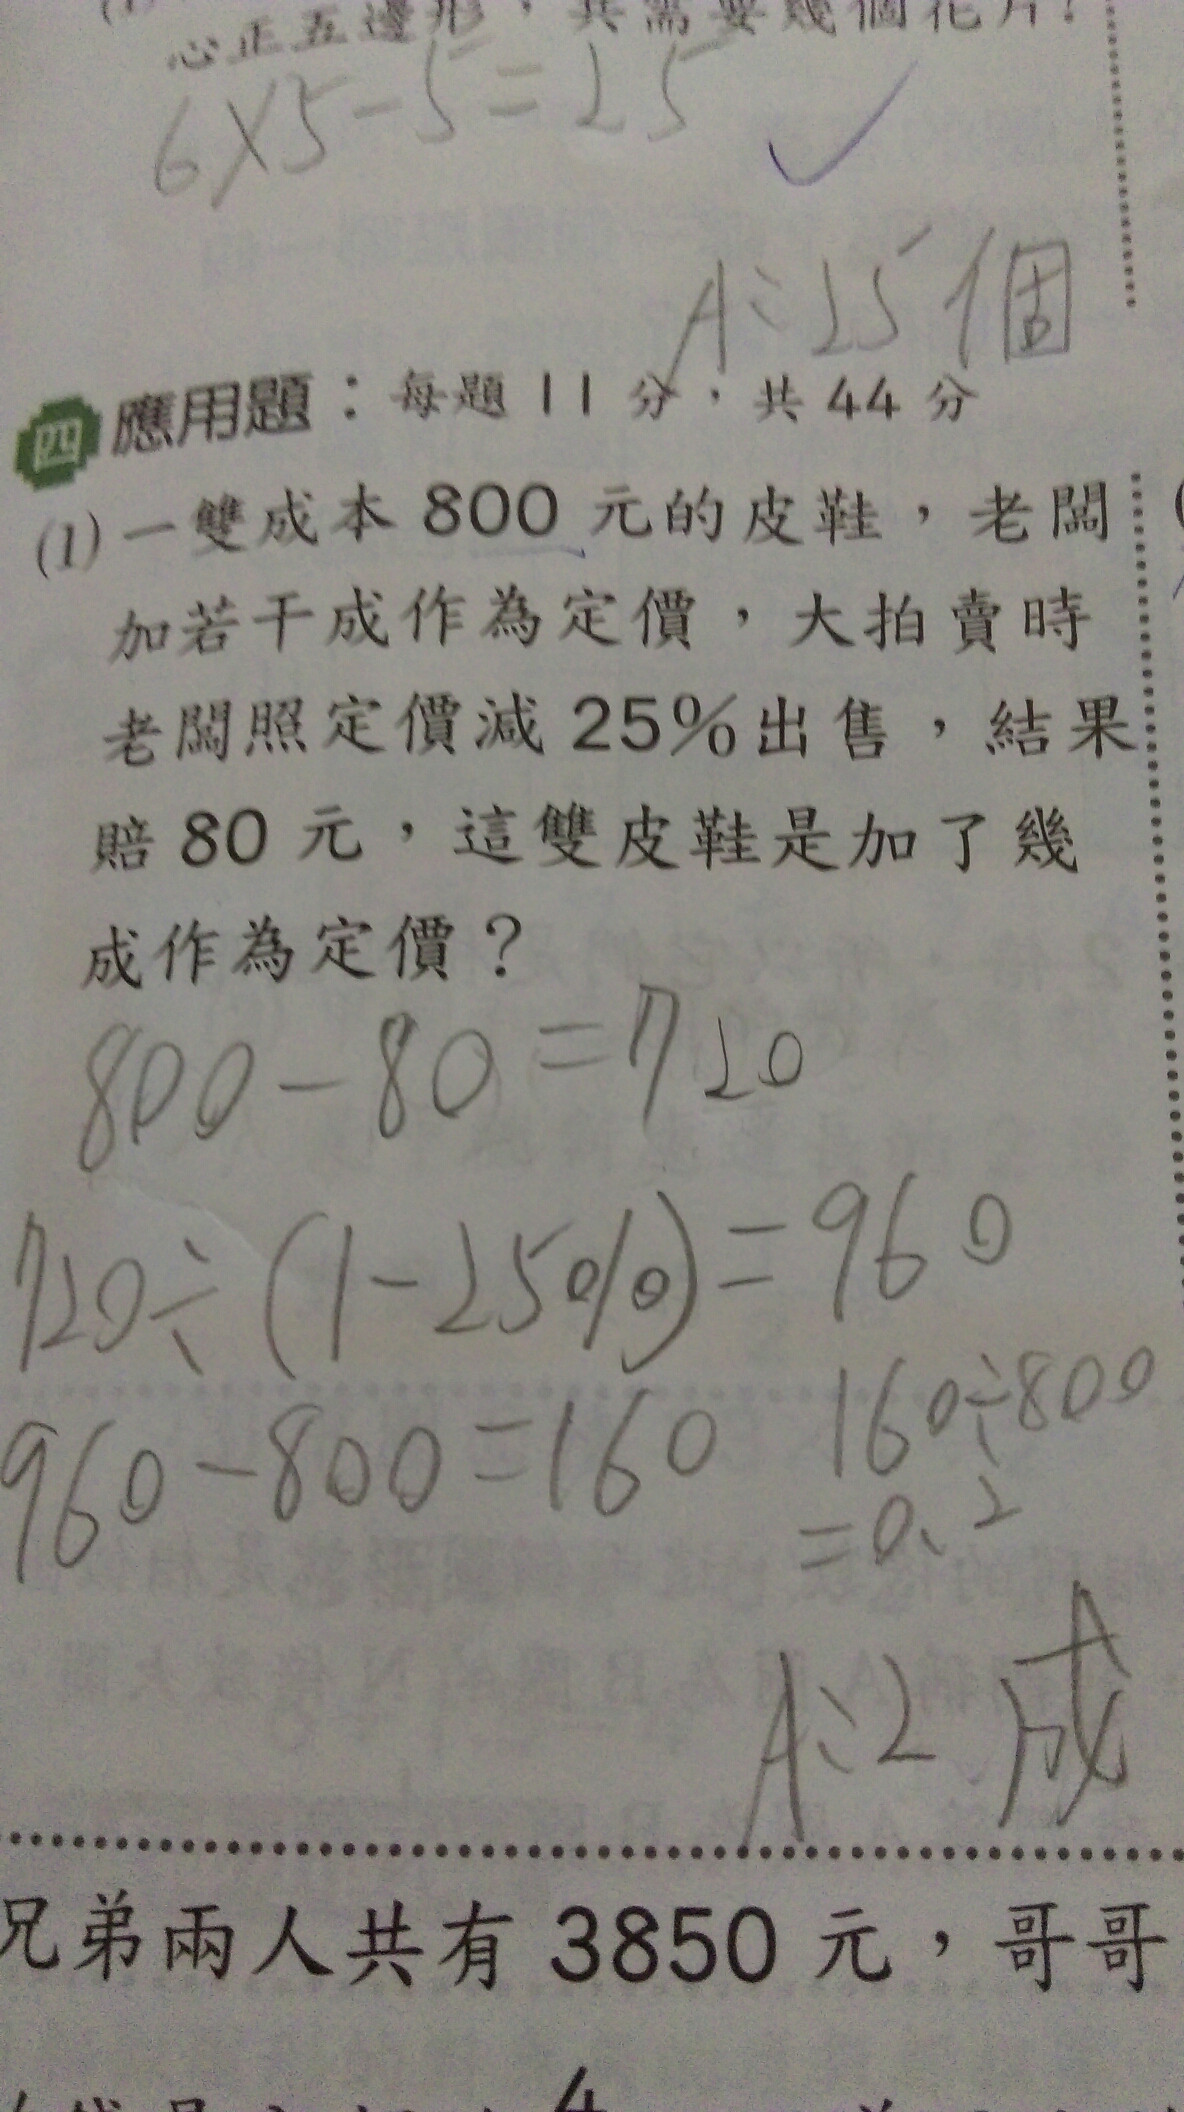 心正五邊形，共需要幾個花片？
6×5-5=25
A：25個
四 應用題：每題11分，共44分
(1)一雙成本800元的皮鞋，老闆
加若干成作為定價，大拍賣時
老闆照定價減25%出售，結果
賠80元，這雙皮鞋是加了幾
成作為定價？
800-80=720
720÷(1-25%)=960
960-800=160
160÷800
=0.2
A：2成
兄弟兩人共有3850元，哥哥
4